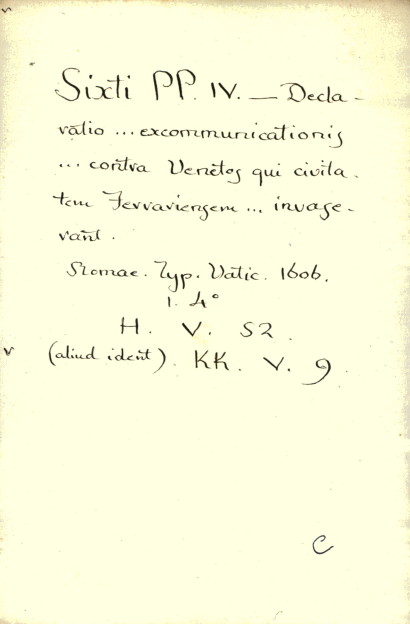 Sixti PP. IV. — Decla-
ratio ... excommunicationis
... contra Venetos qui civita-
tem Ferrariensem ... invase-
rant.
Romae. Typ. Vatic. 1606.
1. 4°
H. V. 52.
(aliud ident). KK. V. 9
C